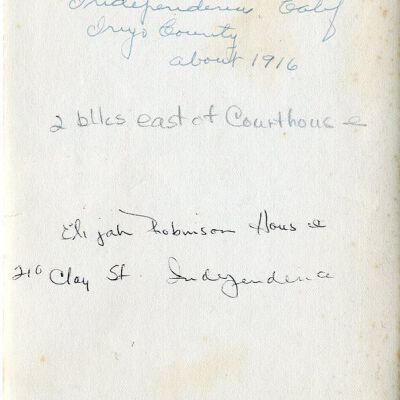 Independence, Calif
Inyo County
about 1916
2 bllcs east of Courthouse
Elijah Robinson House
210 Clay St. Independence